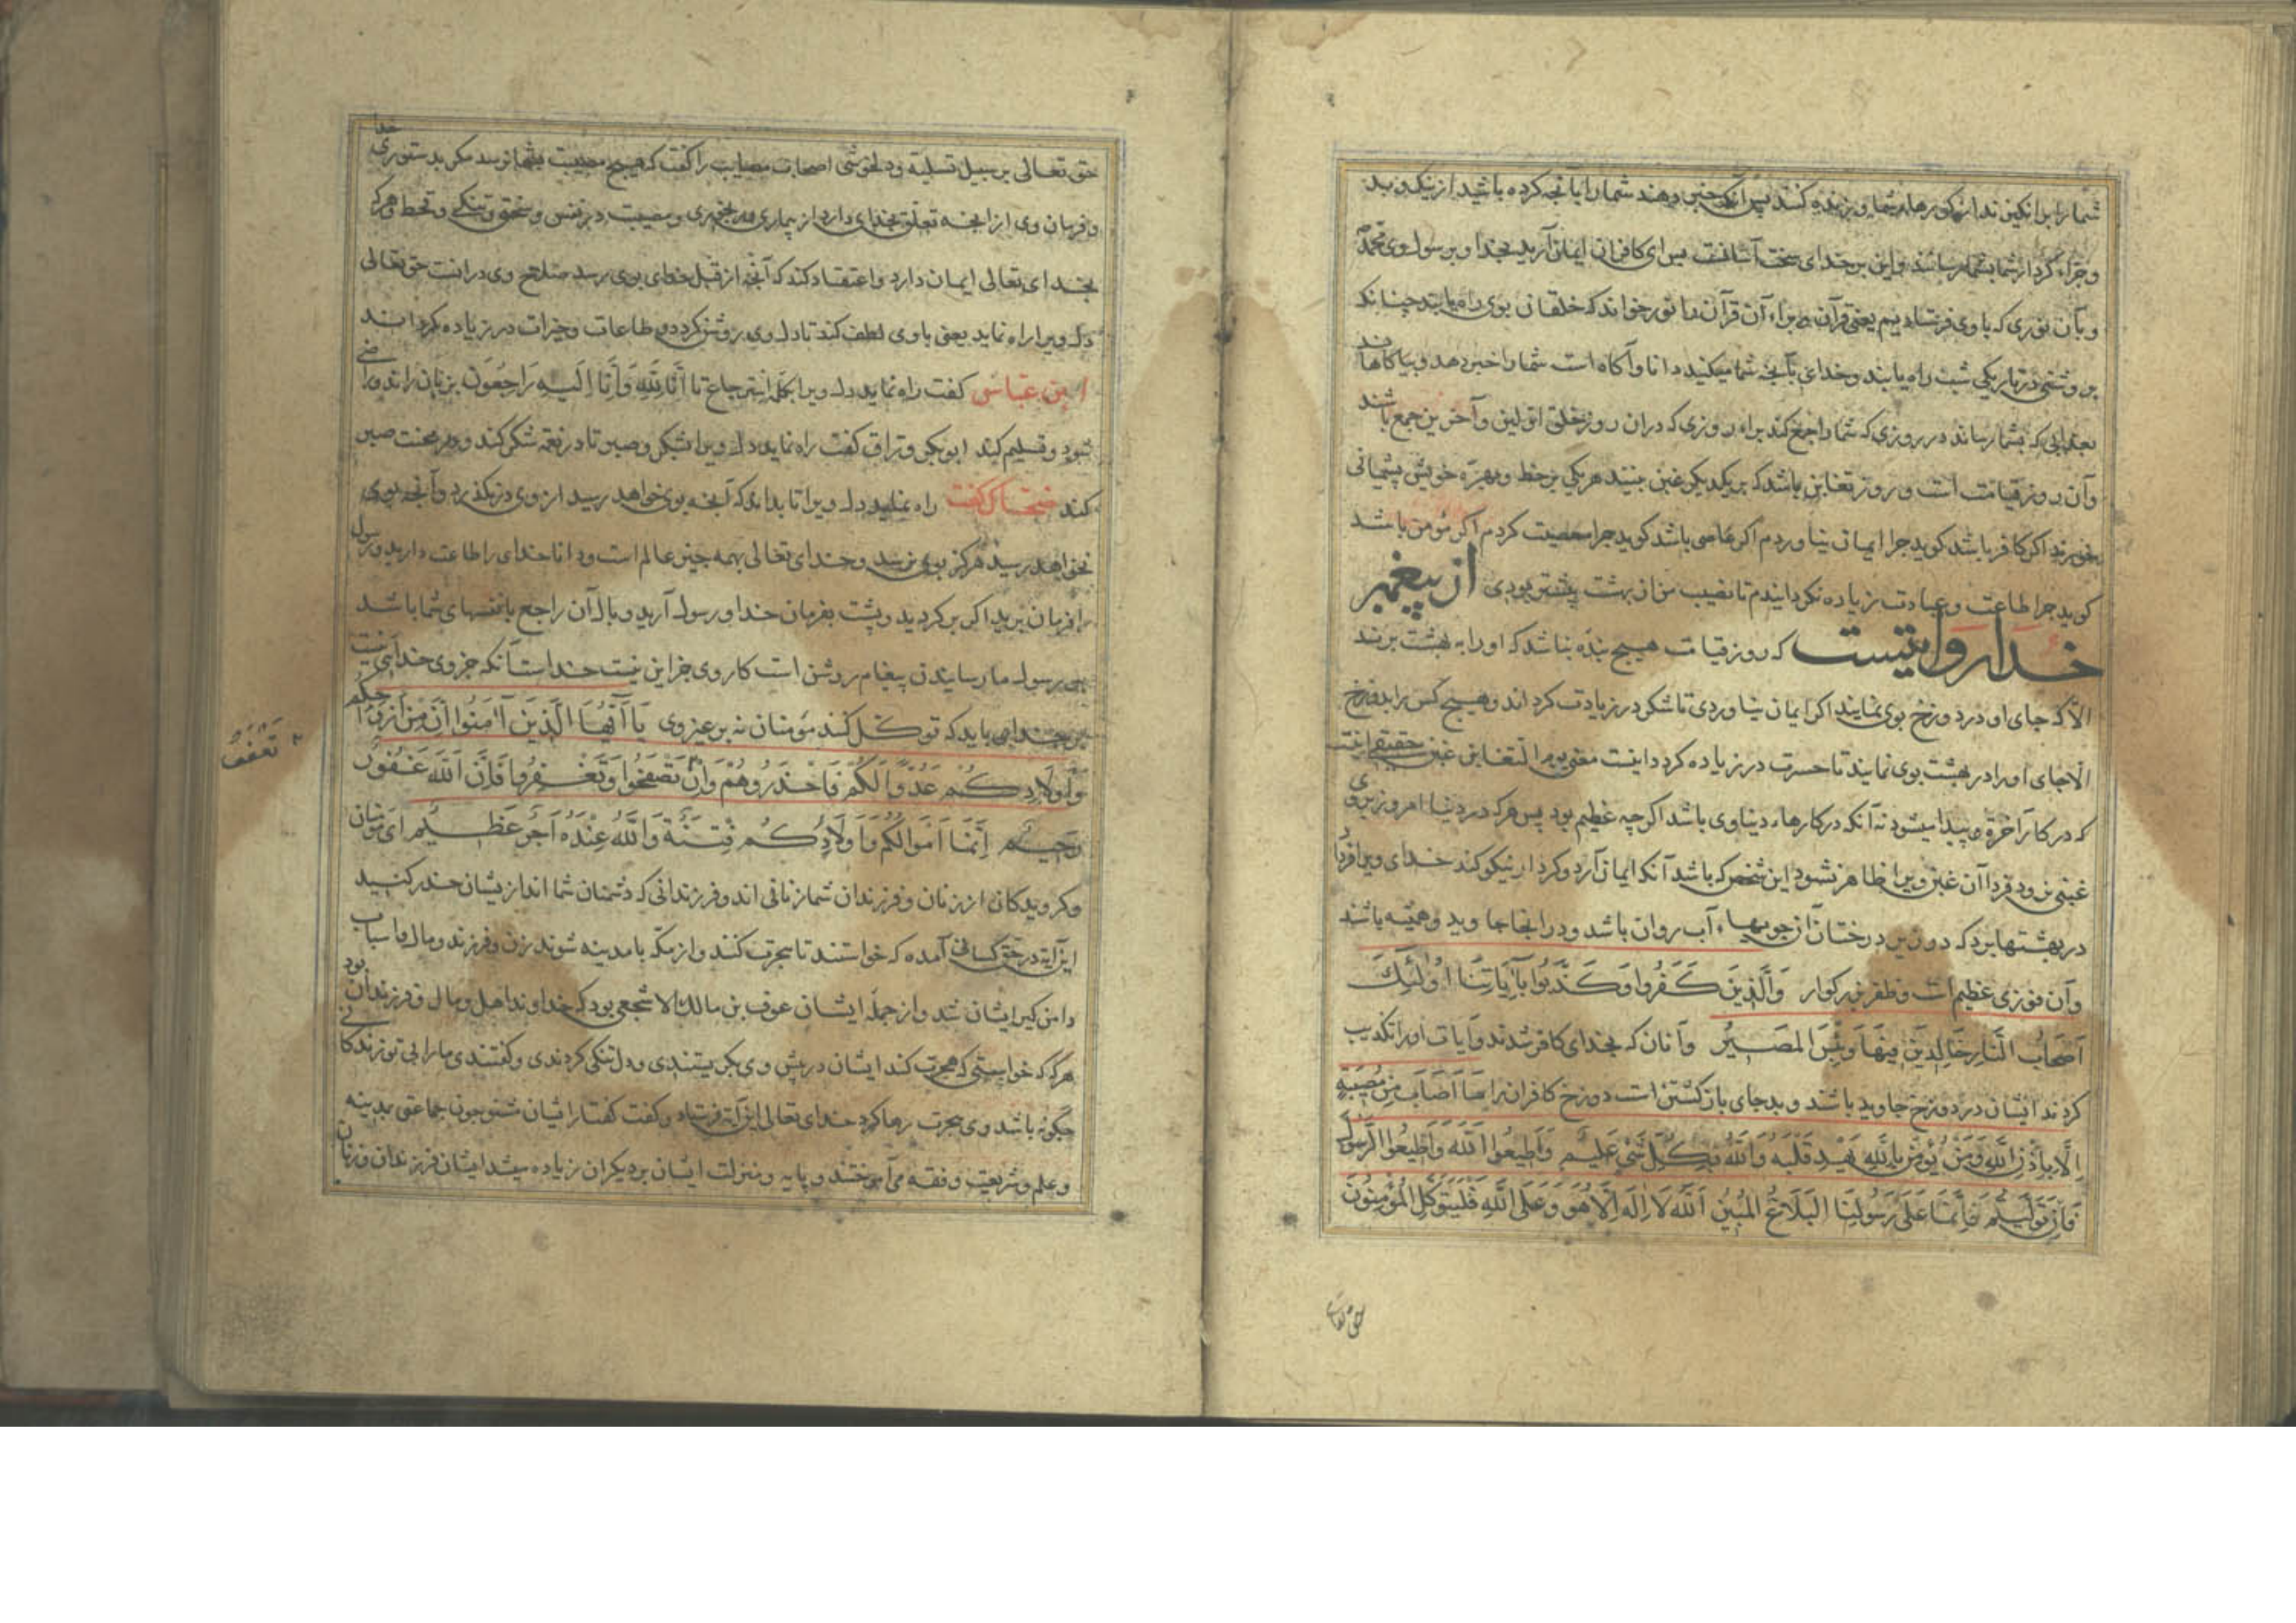 شما را برانگیزند از کورهاء شما و زنده کنند پس آنکه خبر دهند شما را بآنچه کرده باشید از نیک و بد
و جزاء کردار شما بشما رسانند و این بر خدای سخت آسانست پس ای کافران ایمان آرید بخدا و برسول وی محمد
و بآن نوری که با وی فرستادیم یعنی قرآن براء آن قرآن را نور خواند که خلقان بوی راه یابند چنانکه
بروشنی در تاریکی شب راه یابند و خدای بآنچه شما میکنید دانا و آکاه است شما را خبر دهد و بیاکاهاند
بعذابی که بشما رساند در روزی که شما را جمع کند براء روزی که دران روز خلق اولین و آخرین جمع باشند
و آن روز قیامت است و روز تغابن باشد که بر یکدیکر غبن بینند هر یکی بر حظ و بهره خویش پشیمانی
خورند اکر کافر باشد کوید چرا ایمان نیاوردم اکر عاصی باشد کوید چرا معصیت کردم اکر مؤمن باشد
کوید چرا طاعت و عبادت زیاده نکردانیدم تا نصیب من از بهشت بیشتر بودی از پیغمبر
خدا روایتست که روز قیامت هیچ بنده نباشد که او را به بهشت برند
الا که جای او در دوزخ بوی نمایند اکر ایمان نیاوردی تا شکر در زیادت کرداند و هیچ کس را بدوزخ
الا جای او را در بهشت بوی نمایند تا حسرت در زیاده کردد اینست معنی یوم التغابن غبن حقیقی اینست
که در کار آخرة پیدا میشود نه آنکه در کارهاء دنیاوی باشد اکر چه عظیم بود پس هر که در دنیا امروز بر وی
غبنی رود فردا آن غبن ویرا ظاهر نشود این شخص که باشد آنکه ایمان آرد و کردار نیکو کند خدای ویرا فردا
در بهشتها برد که در زیر درختان آن جویهاء آب روان باشد و در انجا جاوید و همیشه باشند
و آن فوزی عظیم است و ظفر بزرکوار وَالَّذِینَ کَفَرُوا وَکَذَّبُوا بِآیَاتِنَا اُولٰئِكَ
اَصْحَابُ النَّارِ خَالِدِینَ فِیهَا وَبِئْسَ المَصِیرُ و آنان که بخدای کافر شدند و آیات او را تکذیب
کردند ایشان در دوزخ جاوید باشند و بد جای بازکشتن است دوزخ کافران را مَا اَصَابَ مِنْ مُصِیبَةٍ
اِلَّا بِاِذْنِ اللَّهِ وَمَنْ یُؤْمِنْ بِاللَّهِ یَهْدِ قَلْبَهُ وَاللَّهُ بِکُلِّ شَیْءٍ عَلِیمٌ وَاَطِیعُوا اللَّهَ وَاَطِیعُوا الرَّسُولَ
فَاِنْ تَوَلَّیْتُمْ فَاِنَّمَا عَلَی رَسُولِنَا البَلَاغُ المُبِینُ اَللَّهُ لَا اِلَهَ اِلَّا هُوَ وَعَلَی اللَّهِ فَلْیَتَوَکَّلِ المُؤْمِنُونَ
حق تعالی
حق تعالی بر سبیل تسلیه و دلخوشی اصحاب مصایب را کفت که هیچ مصیبت بشما نرسد مکر بدستوری خدا
و فرمان وی از انچه تعلق بخدای دارد از بیماری و مصیبت در نفس و سختی و تنکی و قحط و هر که
بخدای تعالی ایمان دارد و اعتقاد کند که آنچه از قبل خدای بوی رسد صلاح وی درانست حق تعالی
دل ویرا راه نماید یعنی با وی لطف کند تا دل وی روشن کردد و طاعات و خیرات در زیاده کرداند
ابن عباس کفت راه نماید دل ویرا بکلمه استرجاع تا اِنَّا لِلَّهِ وَاِنَّا اِلَیْهِ رَاجِعُونَ بر زبان راند و راضی
شود و تسلیم کند ابوبکر وراق کفت راه نماید دل ویرا بشکر و صبر تا در نعمه شکر کند و در محنت صبر
کند ضحاک کفت راه نماید دل ویرا تا بداند که آنچه بوی خواهد رسید از وی در نکذرد و آنچه بوی
نخواهد رسید هرکز بوی نرسد و خدای تعالی بهمه چیز عالم است و دانا خدای را طاعت دارید و رسول
را فرمان برید اکر برکردید و پشت بفرمان خدا و رسول آرید وبال آن راجع با نفسهای شما باشد
بر رسول ما رسانیدن پیغام روشن است کار وی جز این نیست خداست آنکه جز وی خدایی نیست
بر خدای باید که توکل کنند مؤمنان نه بر غیر وی یَا اَیُّهَا الَّذِینَ آمَنُوا اِنَّ مِنْ اَزْوَاجِکُمْ
وَاَوْلَادِکُمْ عَدُوًّا لَکُمْ فَاحْذَرُوهُمْ وَاِنْ تَصْفَحُوا وَتَغْفِرُوا فَاِنَّ اللَّهَ غَفُورٌ
تَعْفُوا
رَحِیمٌ اِنَّمَا اَمْوَالُکُمْ وَاَوْلَادُکُمْ فِتْنَةٌ وَاللَّهُ عِنْدَهُ اَجْرٌ عَظِیمٌ ای مؤمنان
و کرویدکان از زنان و فرزندان شما زنانی اند و فرزندانی که دشمنان شما اند ازیشان حذر کنید
این آیة در حق کسانی آمده که خواستند تا هجرت کنند و از مکه با مدینه شوند زن و فرزند و مال و اسباب
دامن کیر ایشان شد و از جمله ایشان عوف بن مالک الاشجعی بود که خداوند اهل و مال و فرزندان بود
هرکه که خواستی که هجرت کند ایشان در پیش وی بکریستندی و دلتنکی کردندی و کفتندی ما را بی تو زندکانی
چکونه باشد وی هجرت رها کرد خدای تعالی این آیة فرستاد و کفت کفتار ایشان مشنو چون جماعتی بمدینه
و علم و شریعت و فقه می آموختند و پایه و منزلت ایشان بر دیکران زیاده میشد ایشان فرزندان و زنان